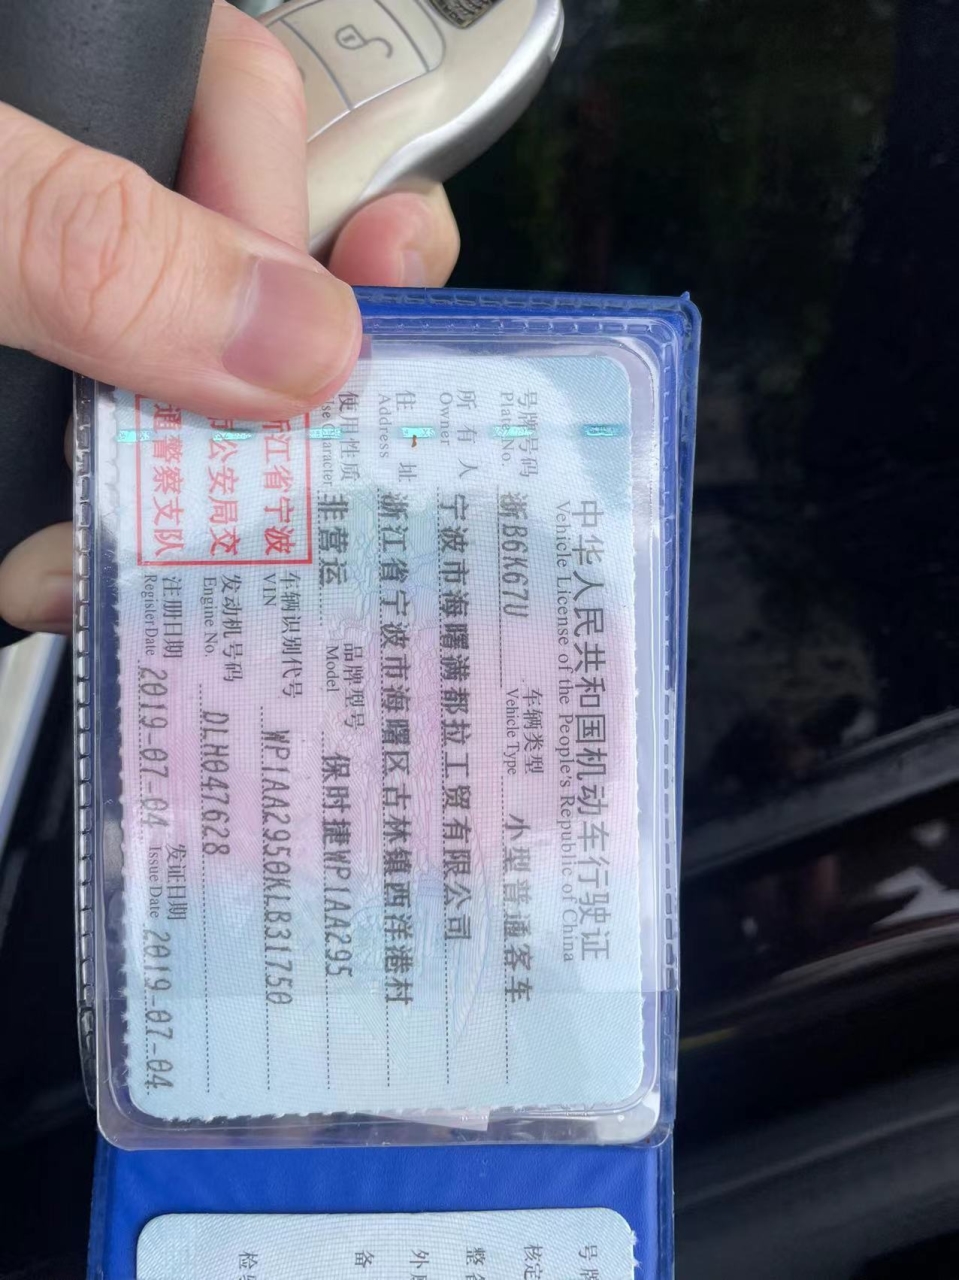 中华人民共和国机动车行驶证
Vehicle License of the People's Republic of China
号牌号码 浙B6K67U 车辆类型 小型普通客车
Plate No. Vehicle Type
所有人 宁波市海曙满都拉工贸有限公司
Owner
住址 浙江省宁波市海曙区古林镇西洋港村
Address
使用性质 非营运 品牌型号 保时捷WP1AA295
Use Character Model
浙江省宁波
公安局交
通警察支队
车辆识别代号 WP1AA2950KLB31750
VIN
发动机号码 DLH047628
Engine No.
注册日期 2019-07-04 发证日期 2019-07-04
Register Date Issue Date
号牌
核定
整备
外
备
检